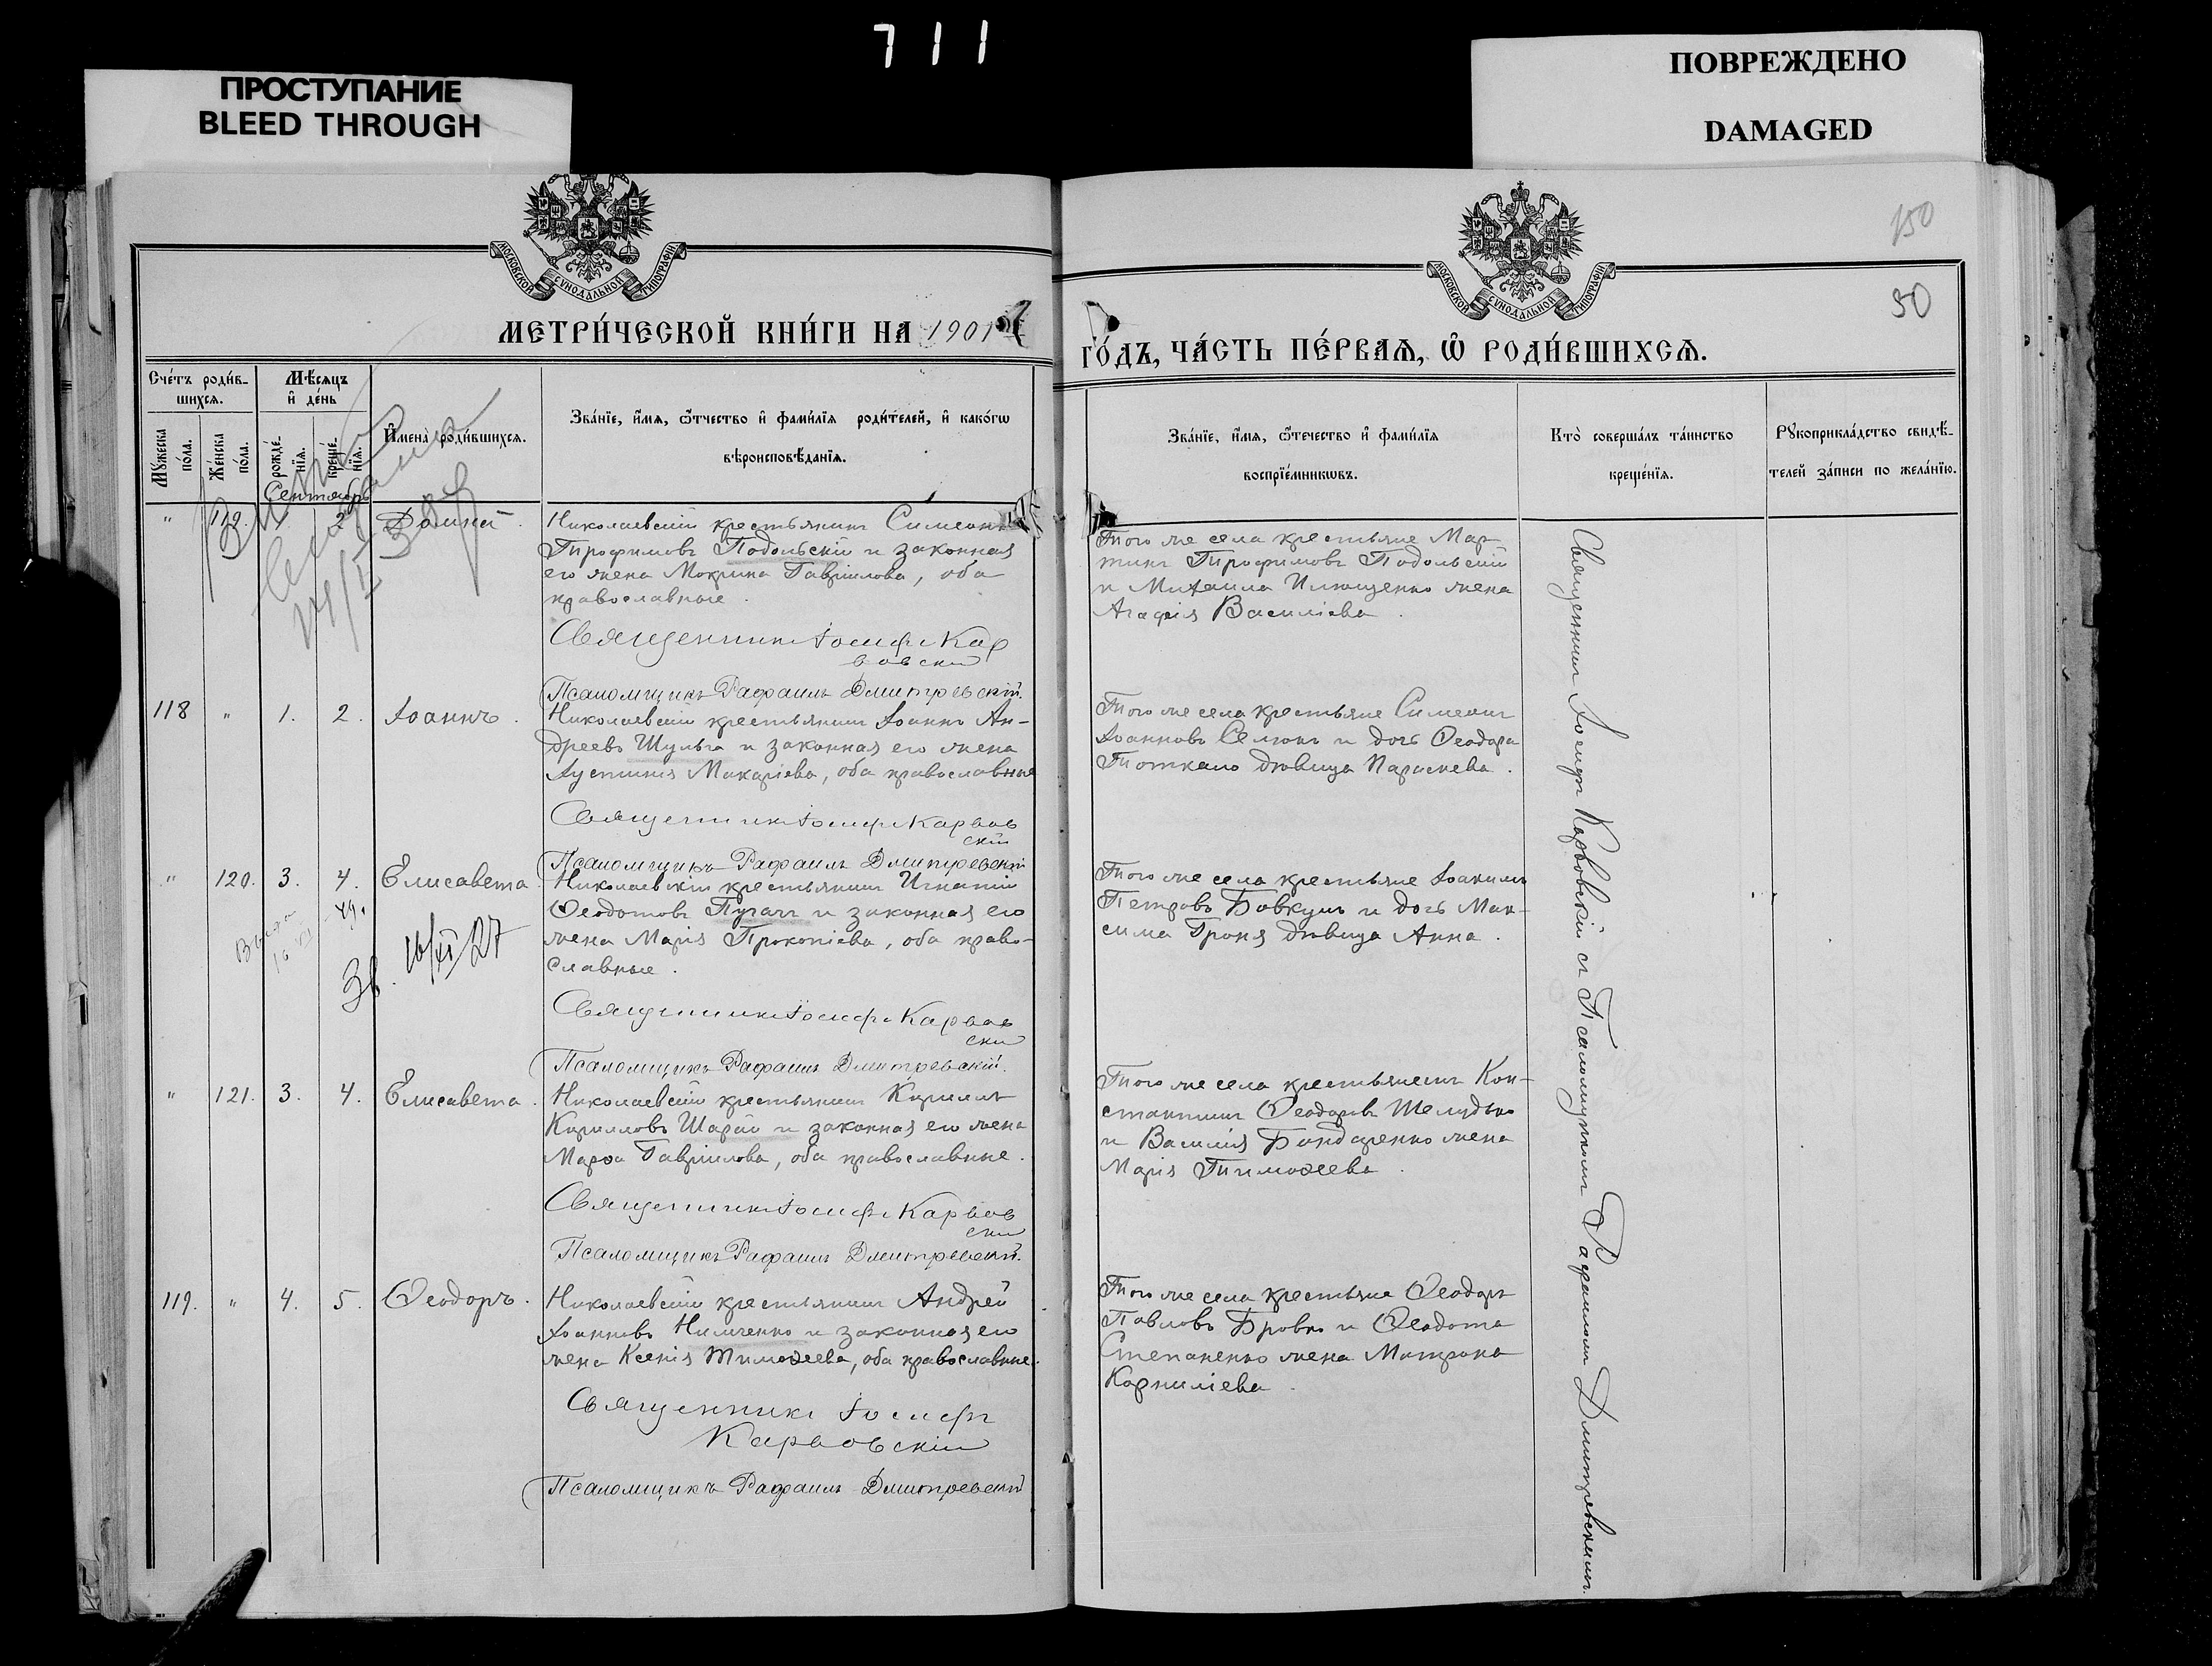 711
ПРОСТУПАНИЕ
BLEED THROUGH
ПОВРЕЖДЕНО
DAMAGED
150
90
МОСКОВСКОЙ СѴНОДАЛЬНОЙ ТИПОГРАФІИ
МОСКОВСКОЙ СѴНОДАЛЬНОЙ ТИПОГРАФІИ
МЕТРИ́ЧЕСКОЙ КНИ́ГИ НА 1901
ГО́ДЪ, ЧА́СТЬ ПЕ́РВАЯ, Ѡ РОДИ́ВШИХСЯ.
Сче́тъ роди́в-
шихся.
Мѣ́сяцъ
и де́нь
Мужеска по́ла.
Же́нска по́ла.
рожде́-нїя.
креще́-нїя.
Имена̀ роди́вшихся.
Зва́нїе, и́мя, ѻ́тчество и фами́лїя роди́телей, и како́гѡ
вѣроисповѣ́данїя.
Зва́нїе, и́мя, ѻ́течество и фами́лїя
воспрїе́мникѡвъ.
Кто̀ соверша́лъ та́инство
креще́нїя.
Рукоприкла́дство свидѣ́-
телей за́писи по жела́нїю.
Сентябрь
" 119. 2
Николаевскій крестьянинъ Симеонъ
Трофимовъ Подольскій и законная
его жена Мокрина Гавріилова, оба
православные.
Священникъ Іосифъ Кар
вовскій
Псаломщикъ Рафаилъ Дмитревскій.
Того же села крестьяне Мар-
тинъ Трофимовъ Подольскій
и Михаила Илющенко жена
Агафія Василіева.
118 " 1. 2. Іоаннъ.
Николаевскій крестьянинъ Іоаннъ Ан-
дреевъ Шульга и законная его жена
Іустинія Макаріева, оба православные
Священникъ Іосифъ Карвов
скій
Псаломщикъ Рафаилъ Дмитревскій
Того же села крестьяне Симеонъ
Іоанновъ Селюкъ и дочь Ѳеодора
Ткаченко дѣвица Параскева.
" 120. 3. 4. Елисавета.
Зв. 16/XI 27
Николаевскій крестьянинъ Игнатій
Ѳеодотовъ Пугачъ и законная его
жена Марія Прокопіева, оба право-
славные.
Священникъ Іосифъ Карвов
скій
Псаломщикъ Рафаилъ Дмитревскій.
Того же села крестьяне Іоакимъ
Петровъ Бовкунъ и дочь Мак-
сима Гроня дѣвица Анна.
" 121. 3. 4. Елисавета.
Николаевскій крестьянинъ Кириллъ
Кирилловъ Шарай и законная его жена
Марѳа Гавріилова, оба православные.
Священникъ Іосифъ Карвов
скій
Псаломщикъ Рафаилъ Дмитревскій.
Того же села крестьянинъ Кон-
стантинъ Ѳеодоровъ Шелудько
и Василія Бондаренко жена
Марія Тимоѳеева.
119. " 4. 5. Ѳеодоръ.
Николаевскій крестьянинъ Андрей
Іоанновъ Нимченко и законная его
жена Ксенія Тимоѳеева, оба православные.
Священникъ Іосифъ
Карвовскій
Псаломщикъ Рафаилъ Дмитревскій
Того же села крестьяне Ѳеодоръ
Павловъ Бровко и Ѳеодота
Степаненко жена Матрона
Корниліева.
Священникъ Іосифъ Карвовскій съ Псаломщикомъ Рафаиломъ Дмитревскимъ.